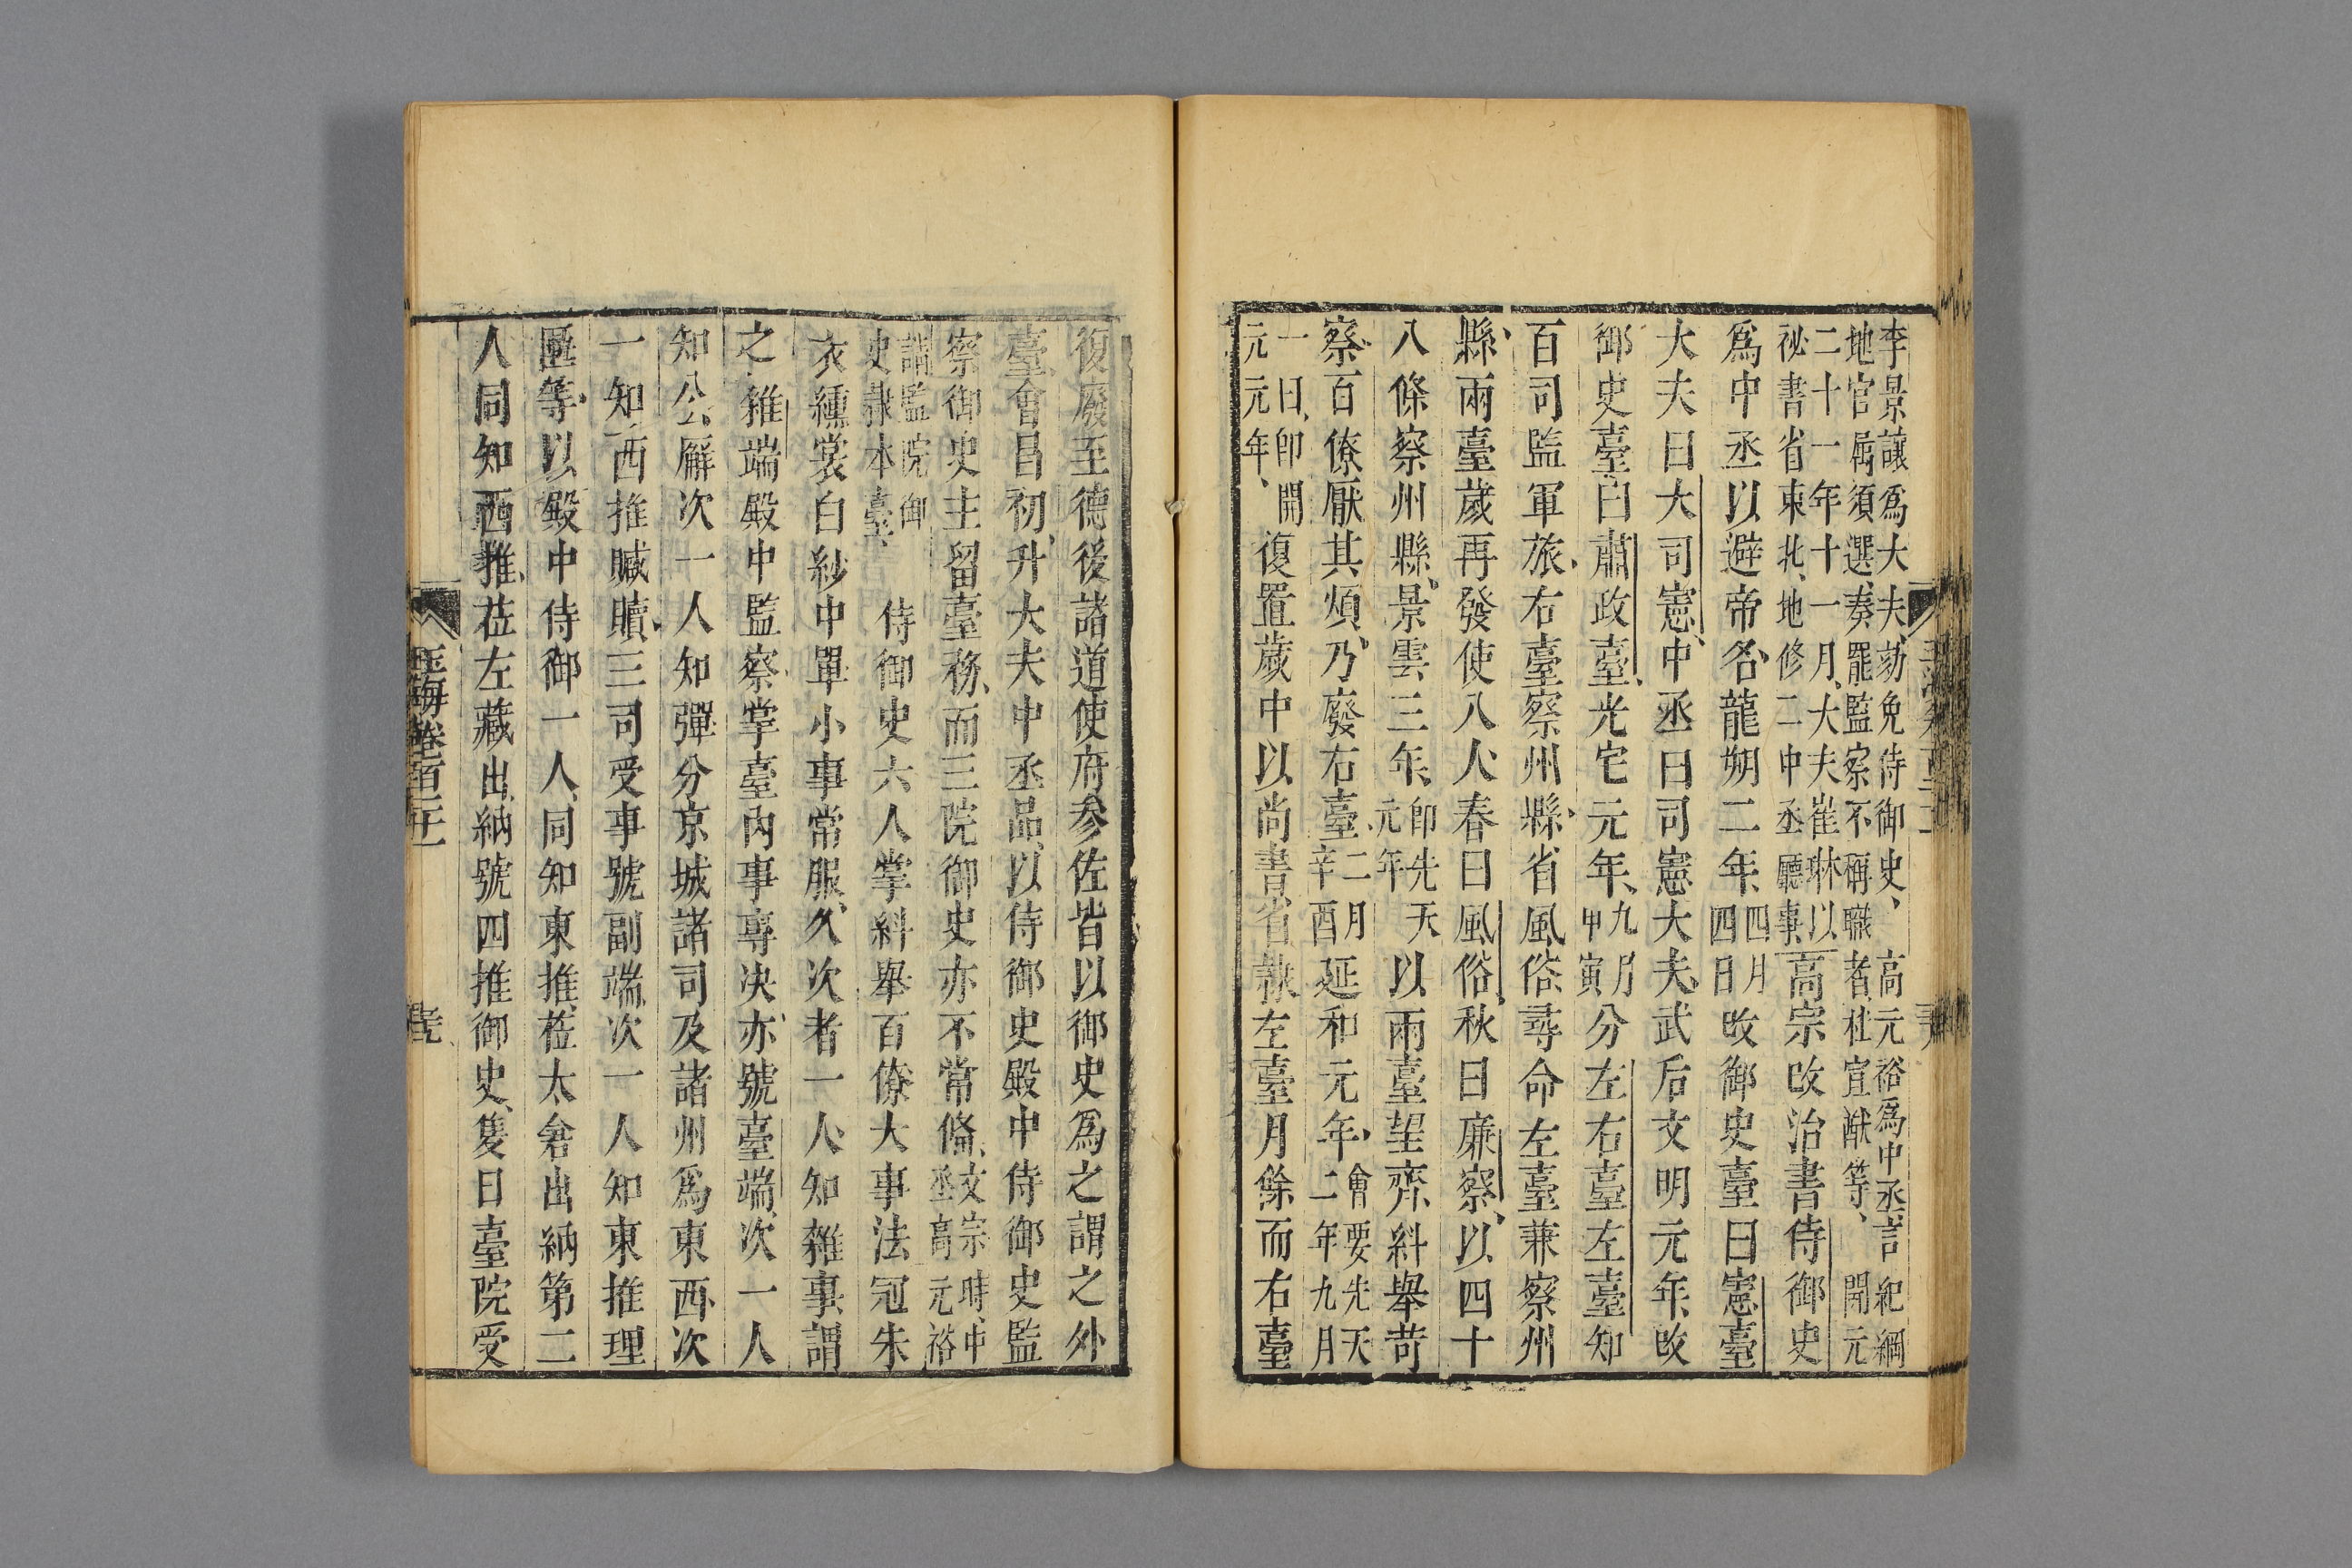 李景讓爲大夫劾免侍御史、　高元裕爲中丞言紀綱
地官屬須選奏罷監察不稱職者杜宣猷等、　開元
二十一年十一月大夫崔琳以
祕書省東北地修二中丞廳事
高宗改治書侍御史
爲中丞以避帝名龍朔二年
四月
四日
改御史臺曰憲臺
大夫曰大司憲中丞曰司憲大夫武后文明元年改
御史臺曰肅政臺光宅元年
九月
甲寅
分左右臺左臺知
百司監軍旅右臺察州縣省風俗尋命左臺兼察州
縣兩臺歲再發使八人春曰風俗秋曰廉察以四十
八條察州縣景雲三年
即先天
元年
以兩臺望齊糾舉苛
察百僚厭其煩乃廢右臺
二月
辛酉
延和元年
會要先天
二年九月
一日即開
元元年、
復置歲中以尚書省隸左臺月餘而右臺
復廢至德後諸道使府參佐皆以御史爲之謂之外
臺會昌初升大夫中丞品以侍御史殿中侍御史監
察御史主留臺務而三院御史亦不常備
文宗時中
丞高元裕
請監院御
史隸本臺
侍御史六人掌糾舉百僚大事法冠朱
衣纁裳白紗中單小事常服久次者一人知雜事謂
之雜端殿中監察掌臺內事專決亦號臺端次一人
知公廨次一人知彈分京城諸司及諸州爲東西次
一知西推贓贖三司受事號副端次一人知東推理
匭等以殿中侍御一人同知東推莅太倉出納第二
人同知西推莅左藏出納號四推御史隻日臺院受
玉海卷百二十一